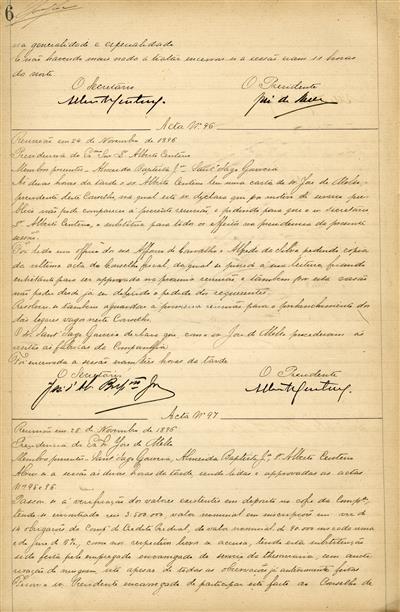 6
na generalidade e especialidade
E não havendo mais nada a tratar encerrou-se a sessão eram 10 horas
da noite
O Secretario O Presidente
Acta Nº 96
Reunião em 24 de Novembro de 1896
Presidencia do Exmo Snr Dr Alberto Centeno
Membros presentes - Almeida Baptista Jor Sant'Iago Gouveia
As duas horas da tarde o sr Alberto Centeno leu uma carta do sr José de Mello
presidente deste Conselho na qual este sr declara que por motivo de serviço
publico não pode comparecer á presente reunião e pedindo para que o sr Secretario
Dr Alberto Centeno, o substitua para todos os effeitos na presidencia da presente
sessão
Foi lido um officio dos srs Affonso de Carvalho e Alfredo da Silva pedindo copia
da ultima acta do Conselho fiscal, da qual se
entretanto para ser approvada na proxima reunião e tambem por esta rasão
não poder desde já ser deferido o pedido dos requerentes
Resolveu-se tambem aguardar a proxima reunião para o preenchimento dos
dois logares vagos neste Conselho
O sr Sant'Iago Gouveia declara que, como o sr José de Mello procederam ao
da Companhia
Foi encerrada a sessão eram tres horas da tarde
O Secretario O Presidente
Acta Nº 97
Reunião em 28 de Novembro de 1896
Presidencia do Exmo Sr José de Mello
Membros presentes - Sant'Iago Gouveia, Almeida Baptista Jor e Alberto Centeno
Abriu-se a sessão ás duas horas da tarde sendo lidas e approvadas as actas
Nos 95 e 96
Passou-se á verificação dos valores existentes em deposito no cofre da Compª
tendo-se encontrado mais 3.500.000, valor nominal em inscripções em vez de
14 obrigações da Compª de Credito Predial, do valor nominal de 90.000 reis cada uma
e de juro de 5%, como nos respectivos livros se accusa, tendo esta substituição
sido feita pelo empregado encarregado do serviço da thesouraria, sem aucto-
risação de ninguem isto apesar de todas as observações já anteriormente feitas
Ficou o sr Presidente encarregado de participar este facto ao Conselho de